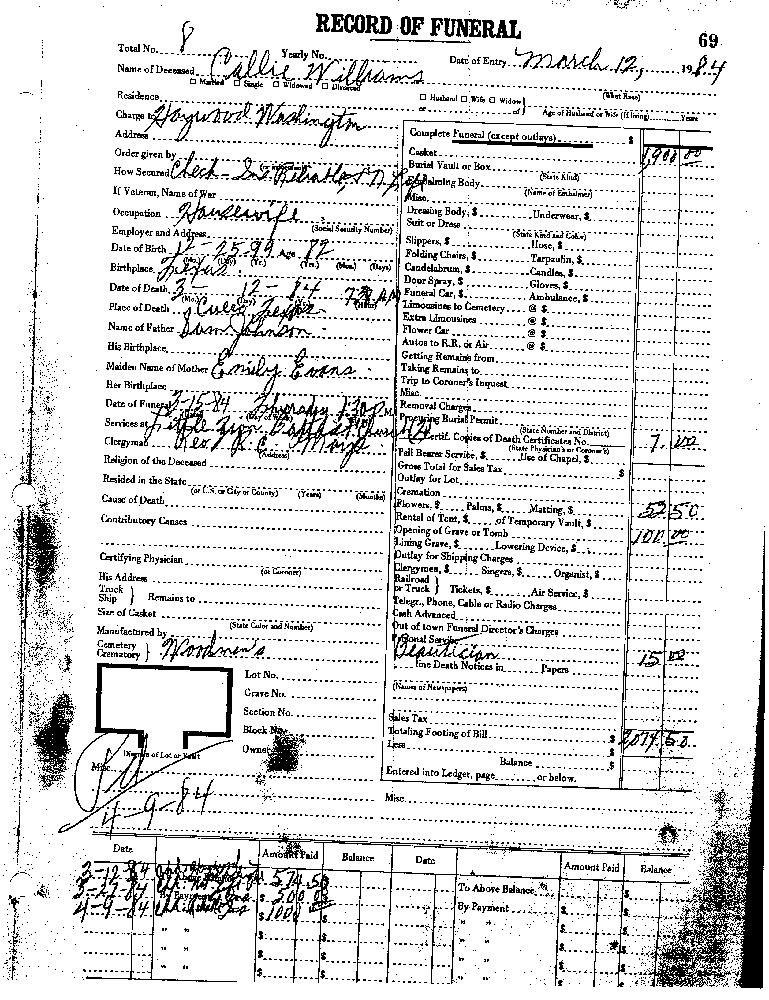 RECORD OF FUNERAL
69
Total No. 8 Yearly No. Date of Entry March 12, 1984
Name of Deceased Callie Williams
☐ Married ☐ Single ☐ Widowed ☐ Divorced ☐ Husband ☐ Wife ☐ Widow (What Race)
Residence or of Age of Husband or Wife (if living) Years
Charge to Haywood Washington
Address
Order given by
How Secured Check
If Veteran, Name of War
Occupation Housewife
(Social Security Number)
Employer and Address
Date of Birth 12-25-99 Age
(Mo.) (Day) (Yr.) (Yrs.) (Mos.) (Days)
Birthplace Texas
Date of Death 3-12-84
Place of Death Texas
Name of Father Sam Johnson
His Birthplace
Maiden Name of Mother Emily Evans
Her Birthplace
Date of Funeral 3-15-84 Thursday 1:30 P.M.
Services at Little Zion Baptist Church
Clergyman Rev.
Religion of the Deceased
Resided in the State
(or U.S. or City or County) (Years) (Months)
Cause of Death
Contributory Causes
Certifying Physician
(or Coroner)
His Address
Truck Ship } Remains to
Size of Casket
(State Color and Number)
Manufactured by
Cemetery Crematory } Woodmen's
Lot No.
Grave No.
Section No.
Block No.
Owner
Diagram of Lot or Vault
Misc.
4-9-84
Complete Funeral (except outlays) $
Casket 1,900 00
Burial Vault or Box
(State Kind)
Embalming Body
(Name of Embalmer)
Misc.
Dressing Body, $ Underwear, $
Suit or Dress
(State Kind and Color)
Slippers, $ Hose, $
Folding Chairs, $ Tarpaulin, $
Candelabrum, $ Candles, $
Door Spray, $ Gloves, $
Funeral Car, $ Ambulance, $
Limousines to Cemetery @ $
Extra Limousines @ $
Flower Car @ $
Autos to R.R. or Air @ $
Getting Remains from
Taking Remains to
Trip to Coroner's Inquest
Misc.
Removal Charges
Procuring Burial Permit
(State Number and District)
Certif. Copies of Death Certificates No. 7.00
(State Physician's or Coroner's)
Pall Bearer Service, $ Use of Chapel, $
Gross Total for Sales Tax $
Outlay for Lot
Cremation
Flowers, $ Palms, $ Matting, $ 52 50
Rental of Tent, $ of Temporary Vault, $
Opening of Grave or Tomb 100.00
Lining Grave, $ Lowering Device, $
Outlay for Shipping Charges
Clergymen, $ Singers, $ Organist, $
Railroad or Truck } Tickets, $ Air Service, $
Telegr., Phone, Cable or Radio Charges
Cash Advanced
Out of town Funeral Director's Charges
Personal Service
Beautician 15 00
line Death Notices in Papers
(Names of Newspapers)
Sales Tax
Totaling Footing of Bill $ 2,074.50
Less $
Balance $
Entered into Ledger, page or below.
Misc.
Date Amount Paid Balance Date Amount Paid Balance
3-12-84 $ 574.50 To Above Balance $
3-27-84 $ 500.00 By Payment $ $
4-9-84 $ 1000 " " $ $
" " $ " " $ $
" " $ " " $ $
" " $ " " $ $